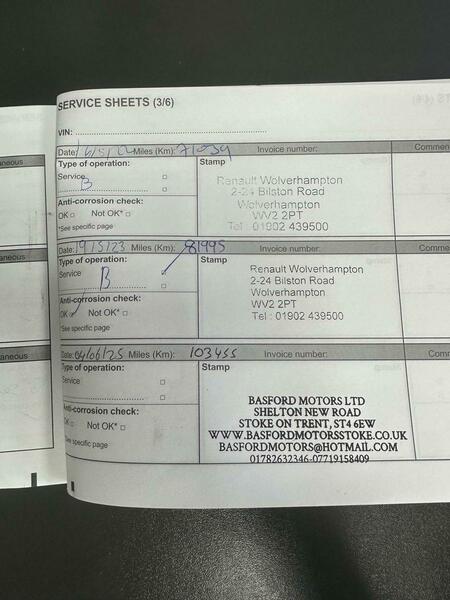 SERVICE SHEETS (3/6)
VIN:
Date: 16/5/22 Miles (Km): 71039 Invoice number: Commen
Type of operation: Stamp
Service
B
Anti-corrosion check:
OK Not OK*
*See specific page
Renault Wolverhampton
2-24 Bilston Road
Wolverhampton
WV2 2PT
Tel : 01902 439500
Date: 19/5/23 Miles (Km): 81995 Invoice number: Comme
Type of operation: Stamp
Service
B
Anti-corrosion check:
OK Not OK*
*See specific page
Renault Wolverhampton
2-24 Bilston Road
Wolverhampton
WV2 2PT
Tel : 01902 439500
Date: 04/06/25 Miles (Km): 103455 Invoice number: Comm
Type of operation: Stamp
Service
Anti-corrosion check:
Not OK*
See specific page
BASFORD MOTORS LTD
SHELTON NEW ROAD
STOKE ON TRENT, ST4 6EW
WWW.BASFORDMOTORSSTOKE.CO.UK
BASFORDMOTORS@HOTMAIL.COM
01782632346-07719158409
aneous
aneous
aneous